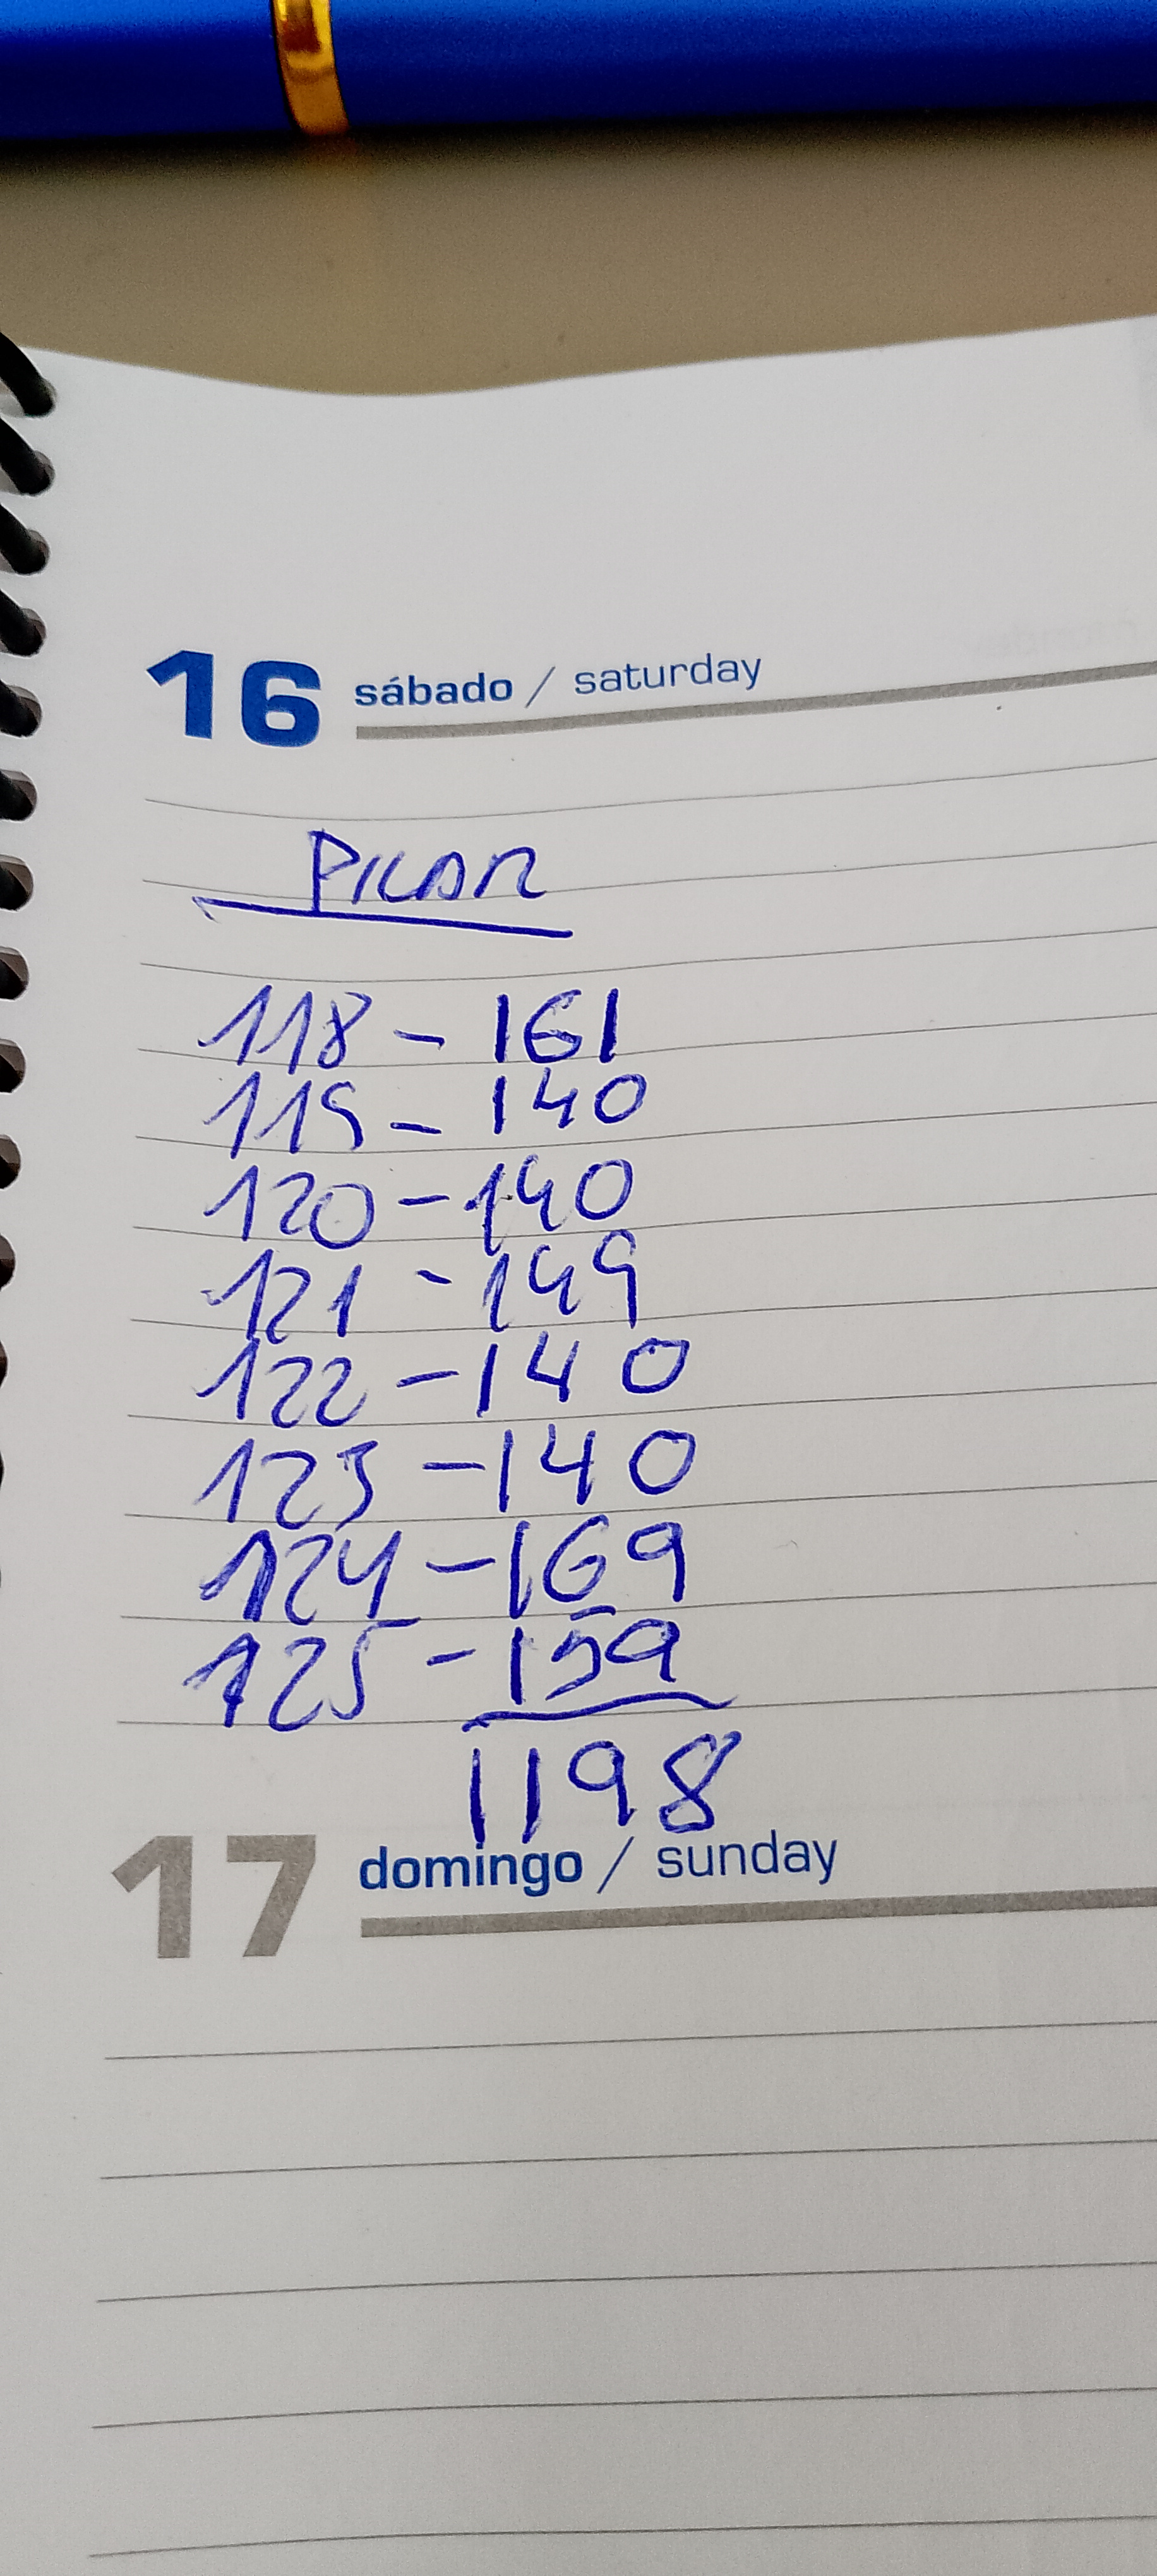 16 sábado / saturday
PILAR
118 - 161
119 - 140
120 - 140
121 - 149
122 - 140
123 - 140
124 - 169
125 - 159
1198
17 domingo / sunday